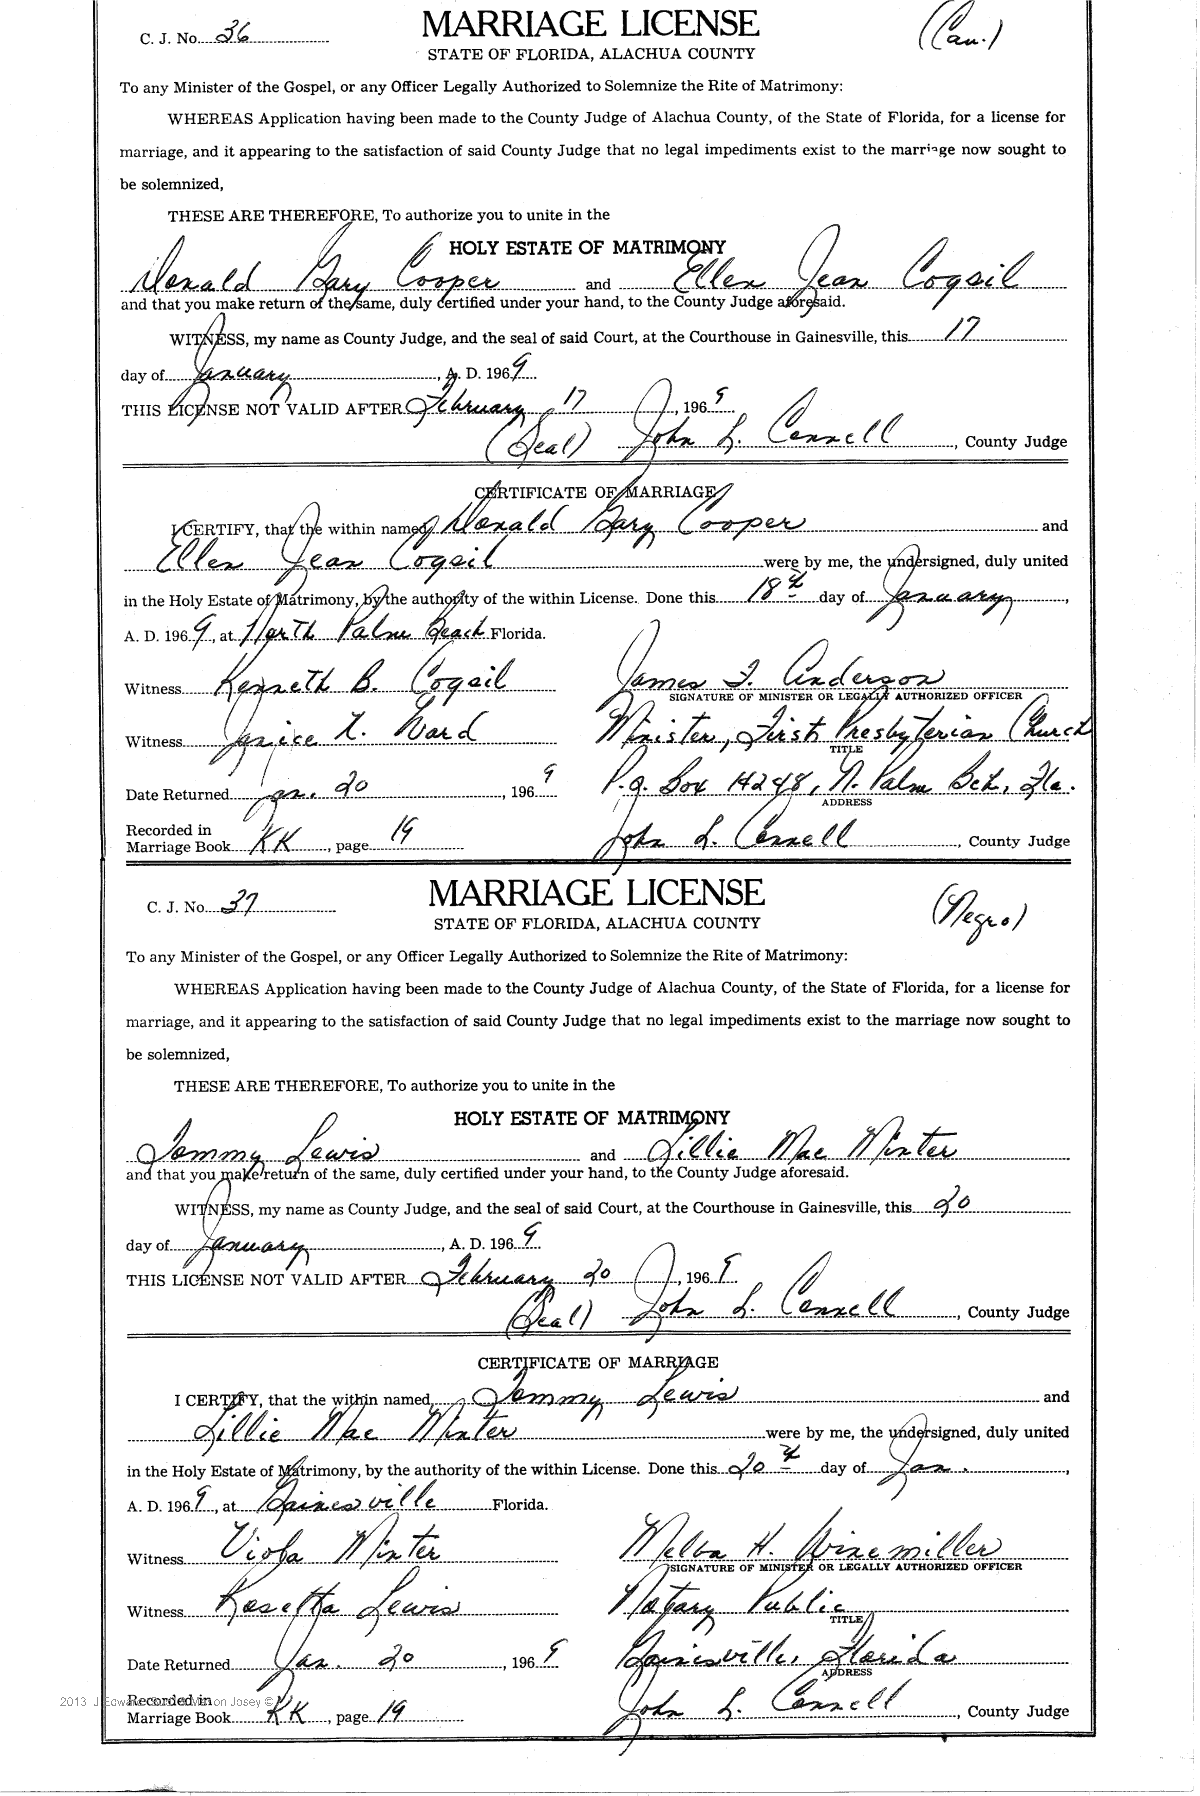 C. J. No. 36
MARRIAGE LICENSE
(Cau.)
STATE OF FLORIDA, ALACHUA COUNTY
To any Minister of the Gospel, or any Officer Legally Authorized to Solemnize the Rite of Matrimony:
WHEREAS Application having been made to the County Judge of Alachua County, of the State of Florida, for a license for
marriage, and it appearing to the satisfaction of said County Judge that no legal impediments exist to the marriage now sought to
be solemnized,
THESE ARE THEREFORE, To authorize you to unite in the
HOLY ESTATE OF MATRIMONY
Donald Gary Cooper and Ellen Jean Cogsil
and that you make return of the same, duly certified under your hand, to the County Judge aforesaid.
WITNESS, my name as County Judge, and the seal of said Court, at the Courthouse in Gainesville, this 17
day of January, A. D. 1969
THIS LICENSE NOT VALID AFTER February 17, 1969
(Seal) John L. Connell, County Judge
CERTIFICATE OF MARRIAGE
I CERTIFY, that the within named Donald Gary Cooper and
Ellen Jean Cogsil were by me, the undersigned, duly united
in the Holy Estate of Matrimony, by the authority of the within License. Done this 18th day of January,
A. D. 1969, at North Palm Beach Florida.
Witness Kenneth B. Cogsil James F. Anderson
SIGNATURE OF MINISTER OR LEGALLY AUTHORIZED OFFICER
Witness Janice K. Ward Minister, First Presbyterian Church
TITLE
Date Returned Jan. 20, 1969 P.O. Box 14248, N. Palm Bch, Fla.
ADDRESS
Recorded in
Marriage Book KK, page 19 John L. Connell, County Judge
C. J. No. 37
MARRIAGE LICENSE
(Negro)
STATE OF FLORIDA, ALACHUA COUNTY
To any Minister of the Gospel, or any Officer Legally Authorized to Solemnize the Rite of Matrimony:
WHEREAS Application having been made to the County Judge of Alachua County, of the State of Florida, for a license for
marriage, and it appearing to the satisfaction of said County Judge that no legal impediments exist to the marriage now sought to
be solemnized,
THESE ARE THEREFORE, To authorize you to unite in the
HOLY ESTATE OF MATRIMONY
Tommy Lewis and Lillie Mae Minter
and that you make return of the same, duly certified under your hand, to the County Judge aforesaid.
WITNESS, my name as County Judge, and the seal of said Court, at the Courthouse in Gainesville, this 20
day of January, A. D. 1969
THIS LICENSE NOT VALID AFTER February 20, 1969
(Seal) John L. Connell, County Judge
CERTIFICATE OF MARRIAGE
I CERTIFY, that the within named Tommy Lewis and
Lillie Mae Minter were by me, the undersigned, duly united
in the Holy Estate of Matrimony, by the authority of the within License. Done this 20th day of Jan.,
A. D. 1969, at Gainesville Florida.
Witness Viola Minter Melba H. Winemiller
SIGNATURE OF MINISTER OR LEGALLY AUTHORIZED OFFICER
Witness Rosetta Lewis Notary Public
TITLE
Date Returned Jan. 20, 1969 Gainesville, Florida
ADDRESS
2013 Josey ©
Recorded in
Marriage Book KK, page 19 John L. Connell, County Judge